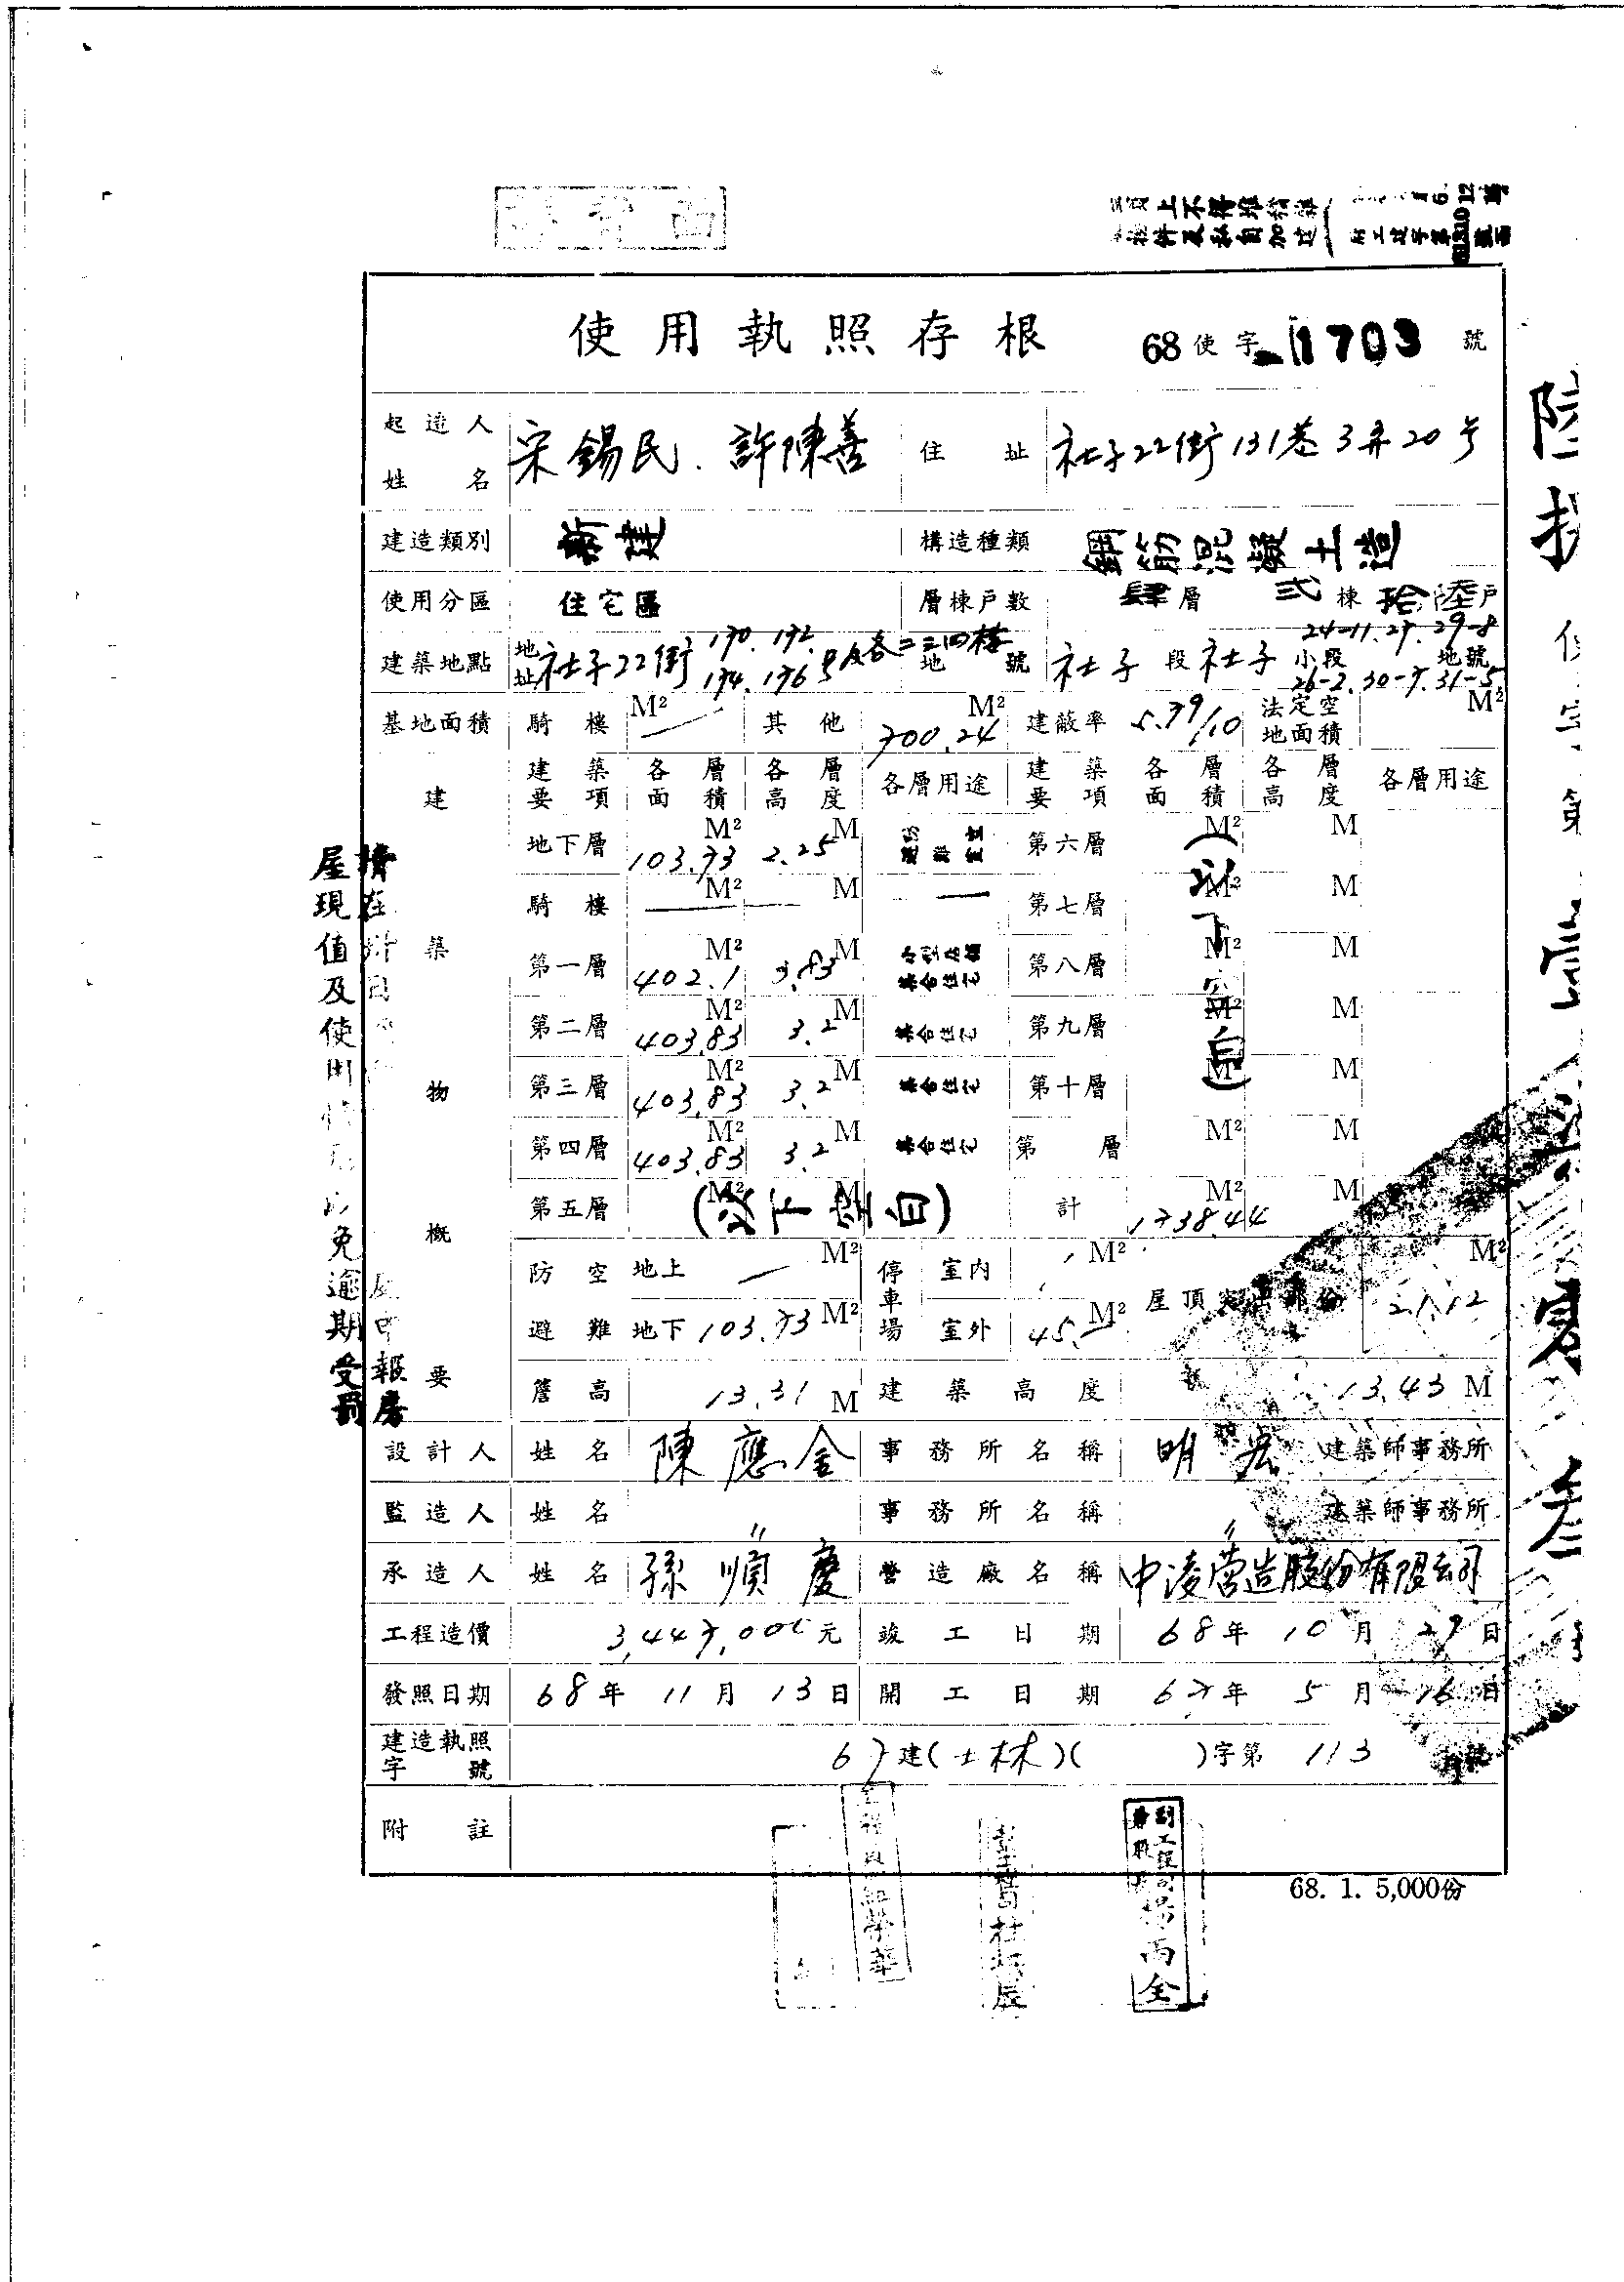 使用執照存根 68使字 1703 號
起造人姓名 宋錫民.許陳善 住址 社子22街131巷3弄20号
建造類別 新建 構造種類 鋼筋混凝土造
使用分區 住宅區 層棟戶數 肆層 弍棟 拾陸戶
建築地點 地址 社子22街170.172.174.176号及各二三四樓 地號 社子段社子小段 24-11.27.29-8 26-2.30-7.31-5 地號
基地面積 騎樓 M² — 其他 700.24 M² 建蔽率 5.79/10 法定空地面積 M²
建築物概要
建築要項 各層面積 各層高度 各層用途 建築要項 各層面積 各層高度 各層用途
地下層 103.73 M² 2.25 M 第六層 M² M
騎樓 — M² — M — 第七層 M² M
第一層 402.1 M² 3.83 M 集合住宅 第八層 M² M
第二層 403.83 M² 3.2 M 集合住宅 第九層 M² M
第三層 403.83 M² 3.2 M 集合住宅 第十層 M² M
第四層 403.83 M² 3.2 M 集合住宅 第 層 M² M
第五層 M² M (以下空白) 計 1738.44 M² M
(以下空白)
防空避難 地上 — M² 停車場 室內 M² 屋頂突出部份 M²
地下 103.73 M² 室外 45.— M²
簷高 13.31 M 建築高度 13.43 M
設計人 姓名 陳應金 事務所名稱 明宏 建築師事務所
監造人 姓名 〃 事務所名稱 〃 建築師事務所
承造人 姓名 孫順慶 營造廠名稱 中淩营造股份有限公司
工程造價 3,447,000元 竣工日期 68年10月29日
發照日期 68年11月13日 開工日期 67年5月16日
建造執照字號 67建(士林)( )字第 113 號
附註
68. 1. 5,000份